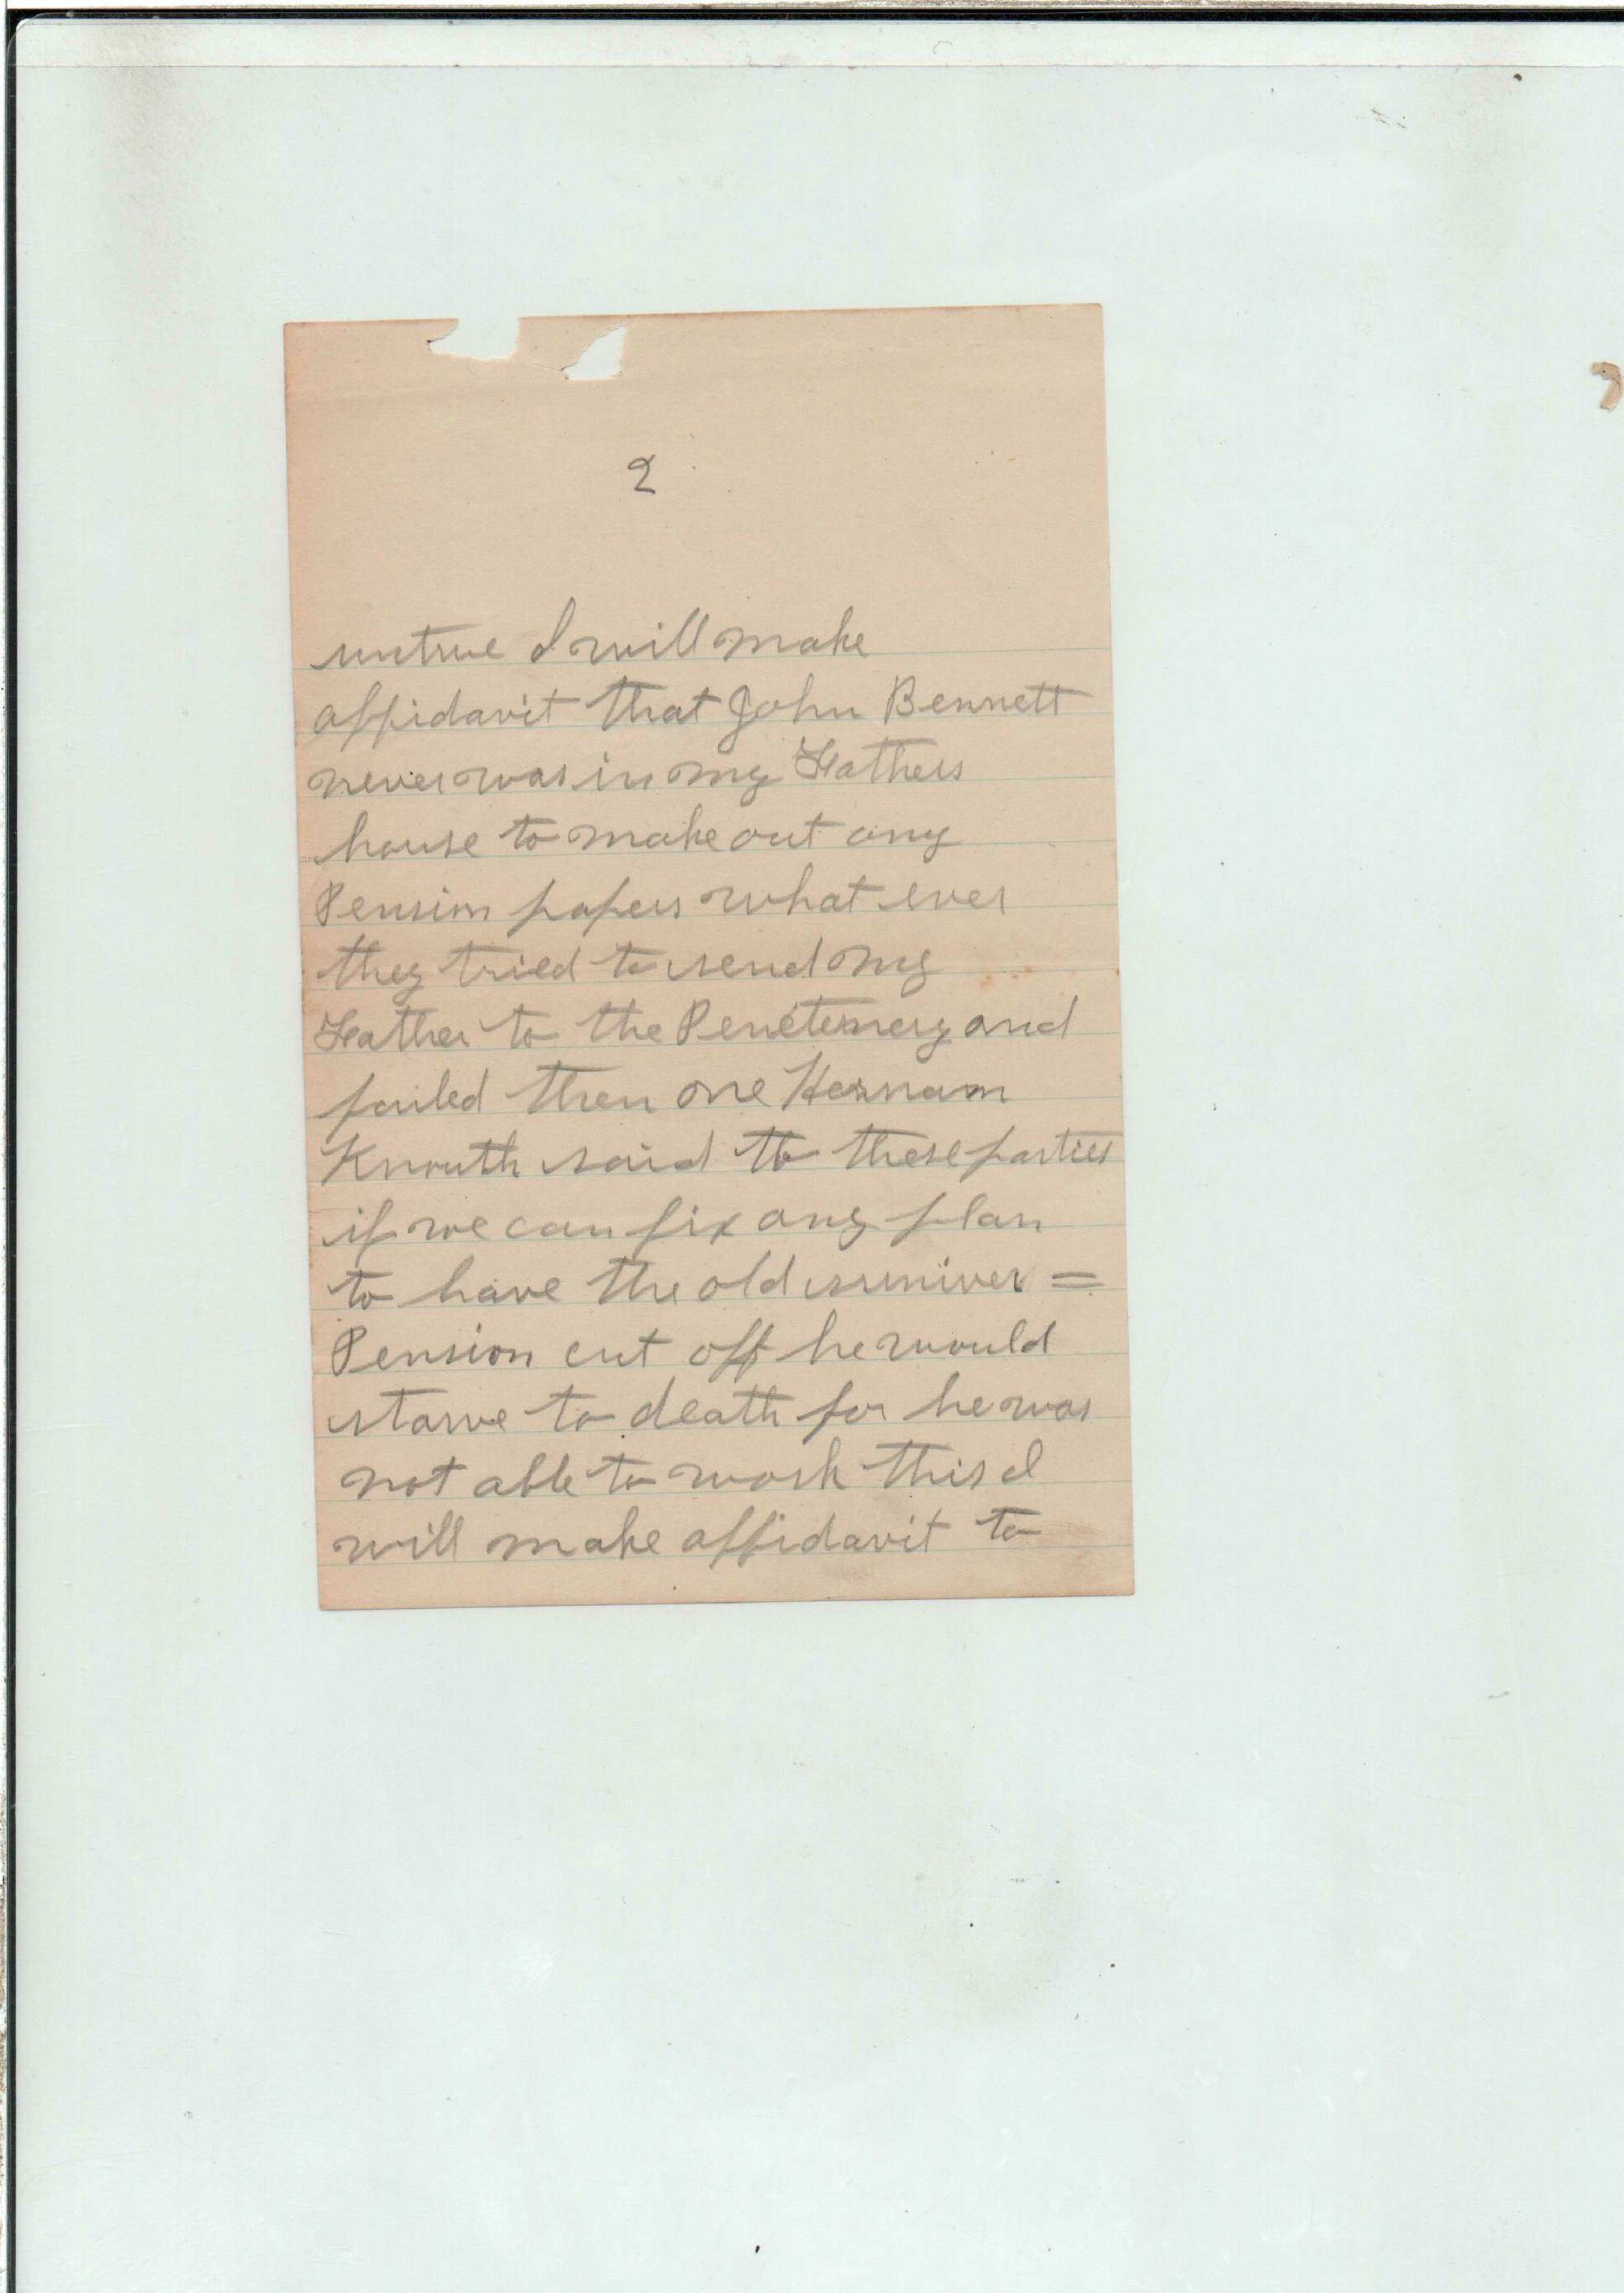 2
untrue I will make
affidavit that John Bennett
never was in my Fathers
house to make out any
Pension papers what ever
they tried to send my
Father to the Penetemery and
failed then one Hernam
Knouth said to these parties
if we can fix any plan
to have the old =
Pension cut off he would
starve to death for he was
not able to work this I
will make affidavit to